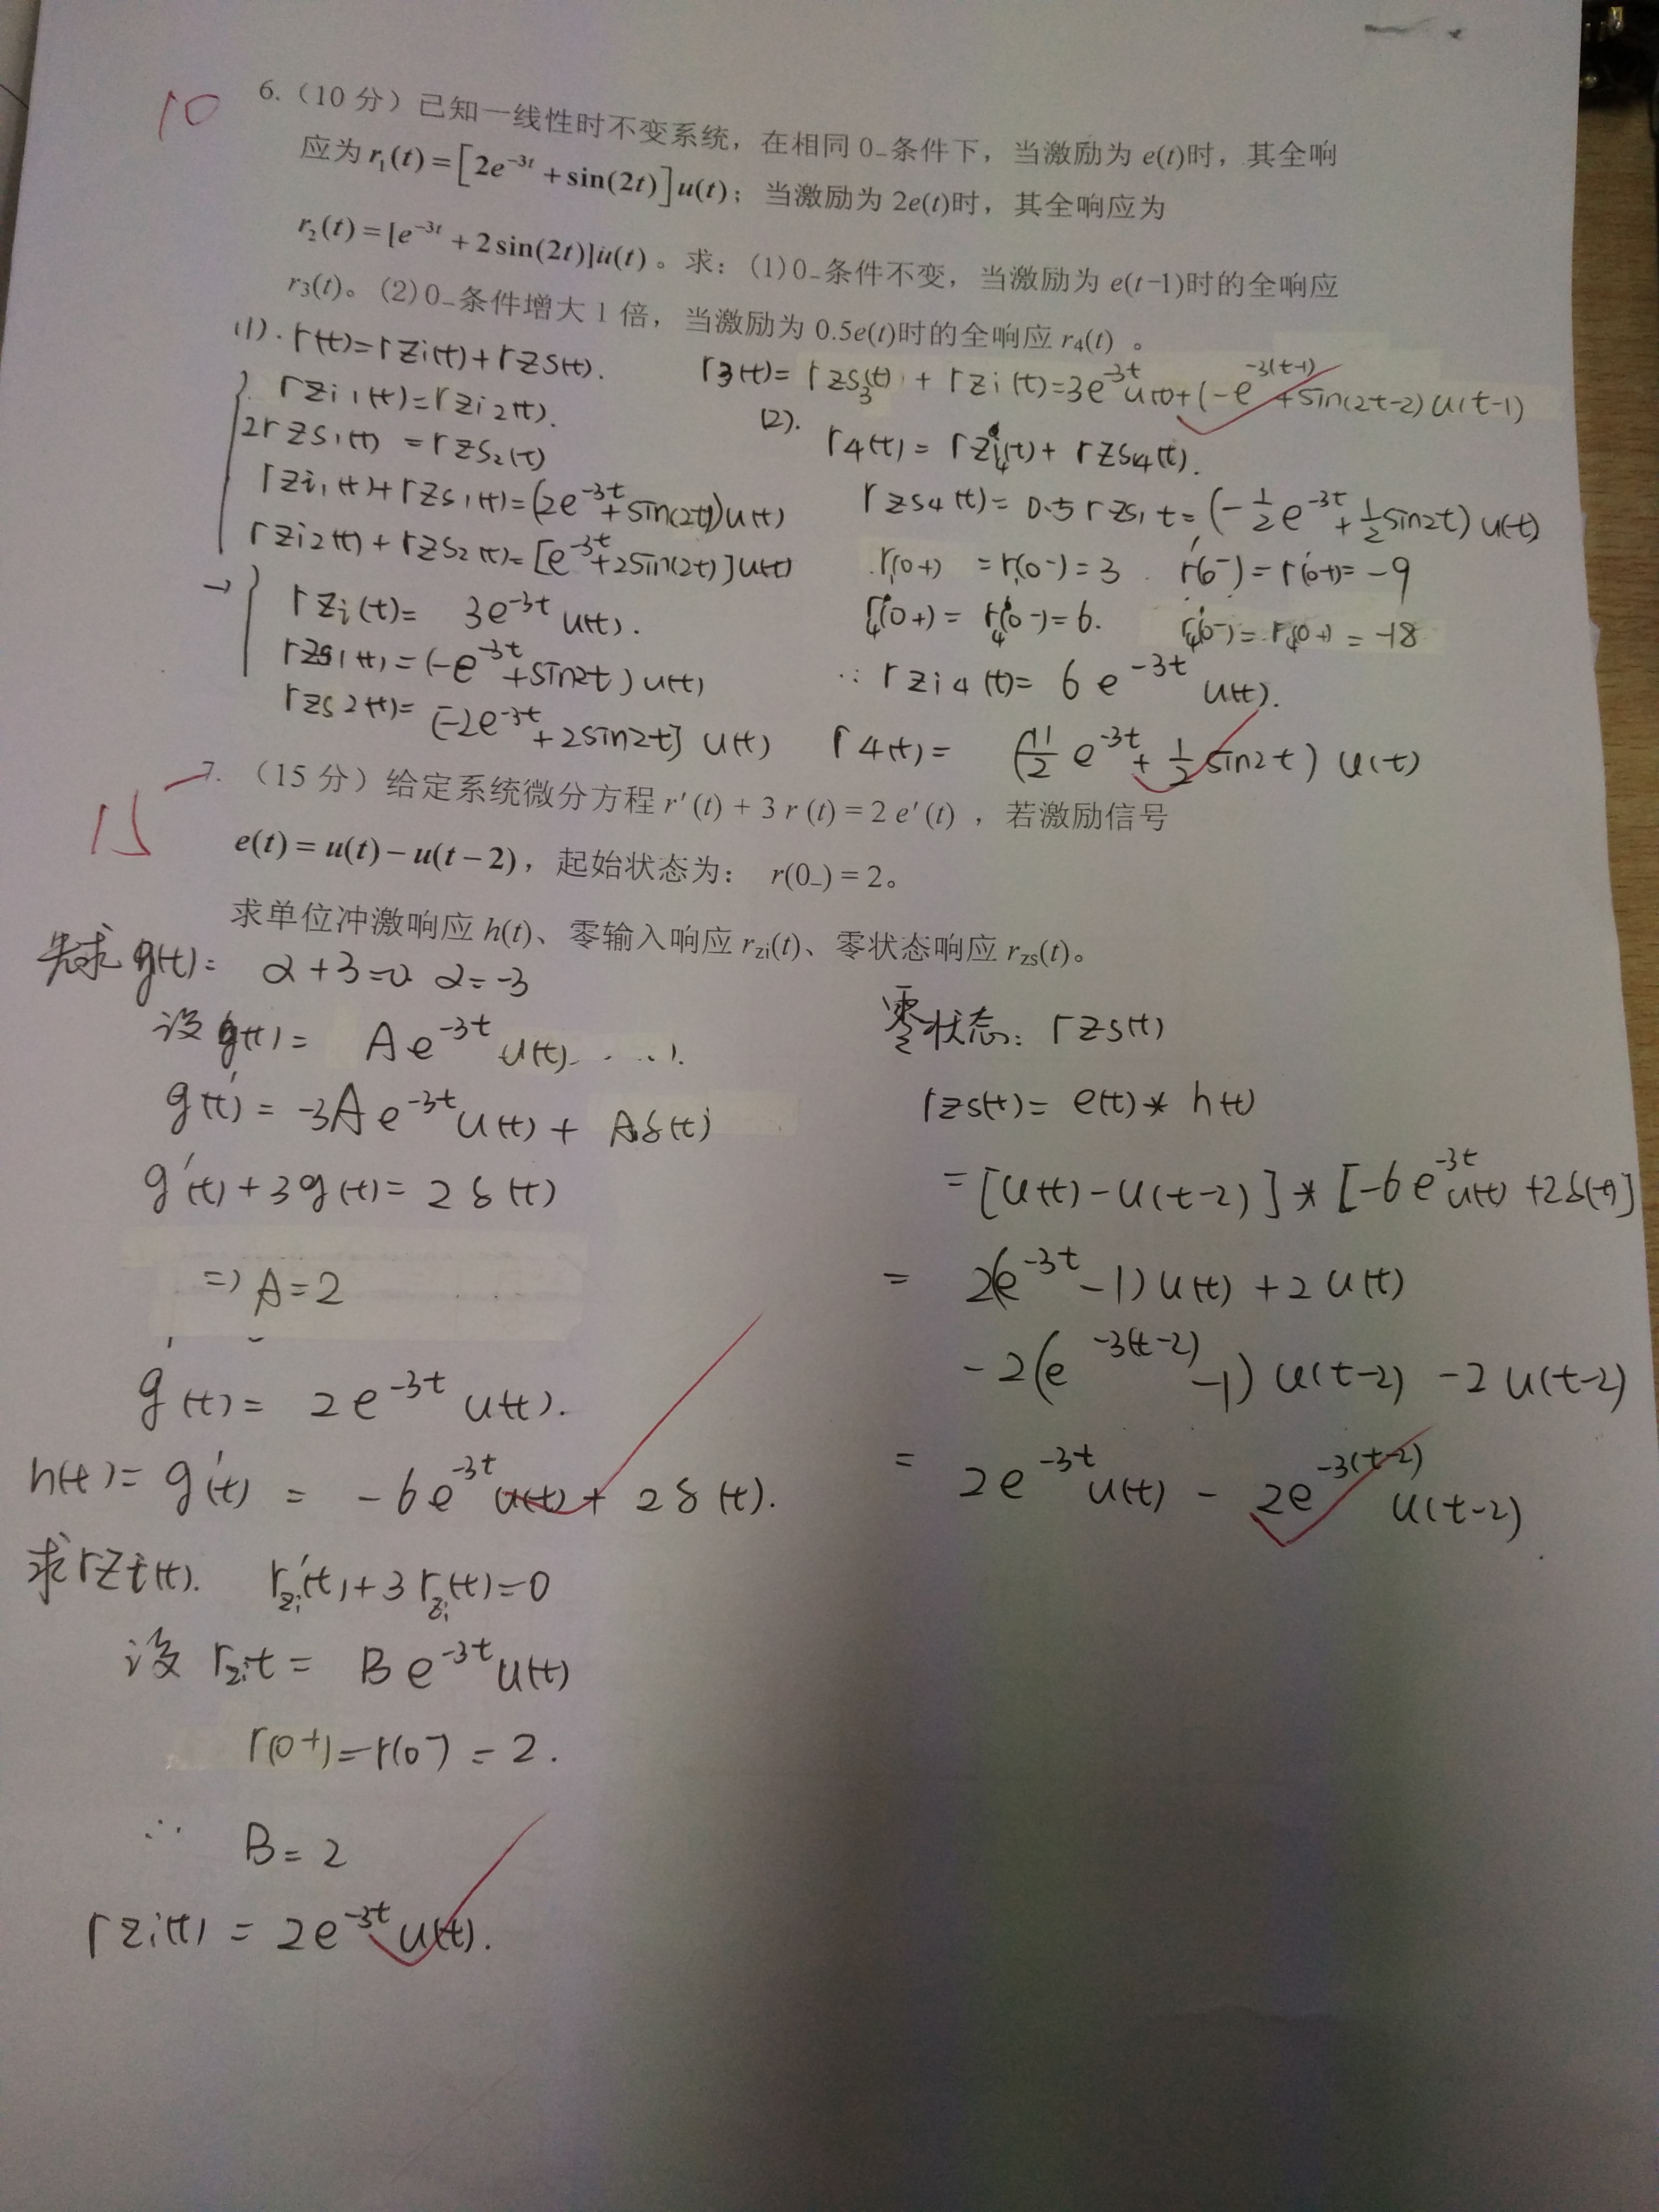 10
6.（10 分）已知一线性时不变系统，在相同 0₋条件下，当激励为 e(t)时，其全响
应为 r₁(t) = [2e⁻³ᵗ + sin(2t)]u(t)；当激励为 2e(t)时，其全响应为
r₂(t) = [e⁻³ᵗ + 2sin(2t)]u(t)。求：(1)0₋条件不变，当激励为 e(t-1)时的全响应
r₃(t)。(2)0₋条件增大 1 倍，当激励为 0.5e(t)时的全响应 r₄(t) 。
(1). r(t)=rzi(t)+rzs(t).
rzi₁(t)=rzi₂(t).
2rzs₁(t) = rzs₂(t)
rzi₁(t)+rzs₁(t)=(2e⁻³ᵗ+sin(2t))u(t)
rzi₂(t)+rzs₂(t)=[e⁻³ᵗ+2sin(2t)]u(t)
→ rzi(t)= 3e⁻³ᵗ u(t).
rzs₁(t)=(-e⁻³ᵗ+sin2t)u(t)
rzs₂(t)= [-2e⁻³ᵗ+2sin2t] u(t)
r₃(t)= rzs₃(t) + rzi(t)=3e⁻³ᵗu(t)+(-e^{-3(t-1)}+sin(2t-2)u(t-1)
(2). r₄(t)= rzi₄(t)+ rzs₄(t).
rzs₄(t)= 0.5rzs₁t=(-½e⁻³ᵗ+½sin2t)u(t)
r₁(0+) =r₁(0-)=3 r₁'(0-)=r₁'(0+)=-9
r₄(0+)= r₄(0-)=6. r₄'(0-)=r₄'(0+)=-18
∴ rzi₄(t)= 6e⁻³ᵗ u(t).
r₄(t)= (11/2 e⁻³ᵗ+½sin2t) u(t)
15
7. （15 分）给定系统微分方程 r′(t) + 3 r (t) = 2 e′(t) ，若激励信号
e(t) = u(t) − u(t − 2)，起始状态为： r(0₋) = 2。
求单位冲激响应 h(t)、零输入响应 r_zi(t)、零状态响应 r_zs(t)。
先求 g(t): α+3=0 α=-3
设 g(t)= Ae⁻³ᵗ u(t)
g'(t)= -3Ae⁻³ᵗu(t)+ Aδ(t)
g'(t)+3g(t)= 2δ(t)
=> A=2
g(t)= 2e⁻³ᵗ u(t).
h(t)= g'(t) = -6e⁻³ᵗu(t)+ 2δ(t).
求rzi(t). rzi'(t)+3rzi(t)=0
设 rzit= Be⁻³ᵗu(t)
r(0+)=r(0-)=2.
∴ B=2
rzi(t) = 2e⁻³ᵗu(t).
零状态: rzs(t)
rzs(t)= e(t)* h(t)
= [u(t)-u(t-2)]*[-6e⁻³ᵗu(t)+2δ(t)]
= 2(e⁻³ᵗ-1)u(t)+2u(t)
-2(e^{-3(t-2)}-1)u(t-2) -2u(t-2)
= 2e⁻³ᵗu(t) - 2e^{-3(t-2)}u(t-2)